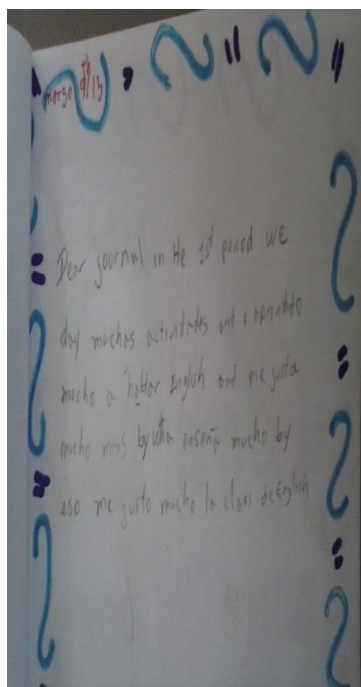 marzo 9/13
Dear journal in He 1st period we
day muchas actividades and i aprendido
mucho a hablar English and me justa
mucho enseña mucho by
eso me justo mucho la clas de English